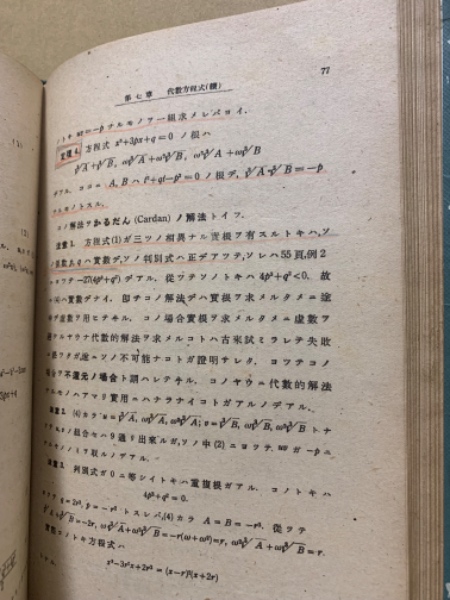 第七章 代數方程式(續) 77
ノトキ uv=−p ナルモノヲ一組求メレバヨイ.
定理 4. 方程式 x³+3px+q=0 ノ根ハ
∛A+∛B, ω∛A+ω²∛B, ω²∛A+ω∛B
デアル. ココニ A, B ハ t²+qt−p³=0 ノ根デ, ∛A·∛B=−p
ナルモノトスル.
コノ解法ヲかるだん (Cardan) ノ解法トイフ.
注意 1. 方程式(1)ガ三ツノ相異ナル實根ヲ有スルトキハ, ソ
係數 p, q ハ實數デ, ソノ判別式ハ正デアツテ, ソレハ55頁, 例2
−27(4p³+q²) デアル. 從ツテソノトキハ 4p³+q²<0. 故
ハ實數デナイ. 卽チコノ解法デハ實根ヲ求メルタメニ途
虛數ヲ用ヒテキル. コノ場合實根ヲ求メルタメニ虛數ヲ
ヤウナ代數的解法ヲ求メルコトハ古來試ミラレテ失敗
ガ遂ニソノ不可能ナコトガ證明サレタ. コツテコノ
場合ヲ不還元ノ場合ト謂ハレテキル. コノヤウニ代數的解法
ハアマリ實用ニハナラナイコトガアルノデアル.
注意 2. (4)カラ u=∛A, ω∛A, ω²∛A; v=∛B, ω∛B, ω²∛B トナ
組合セハ9通リ出來ルガ, ソノ中(2)ニヨツテ uv ガ −p ニ
ナルモノミヲ取ルノデアル.
注意 3. 判別式ガ0ニ等シイトキハ重複根ガアル. コノトキハ
4p³+q²=0.
q=2r³, p=−r² トスレバ, (4)カラ A=B=−r³. 從ツテ
∛A+∛B=−2r, ω∛A+ω²∛B=−r(ω+ω²)=r, ω²∛A+ω∛B=r.
實際コノトキ方程式ハ
x³−3r²x+2r³=(x−r)²(x+2r)